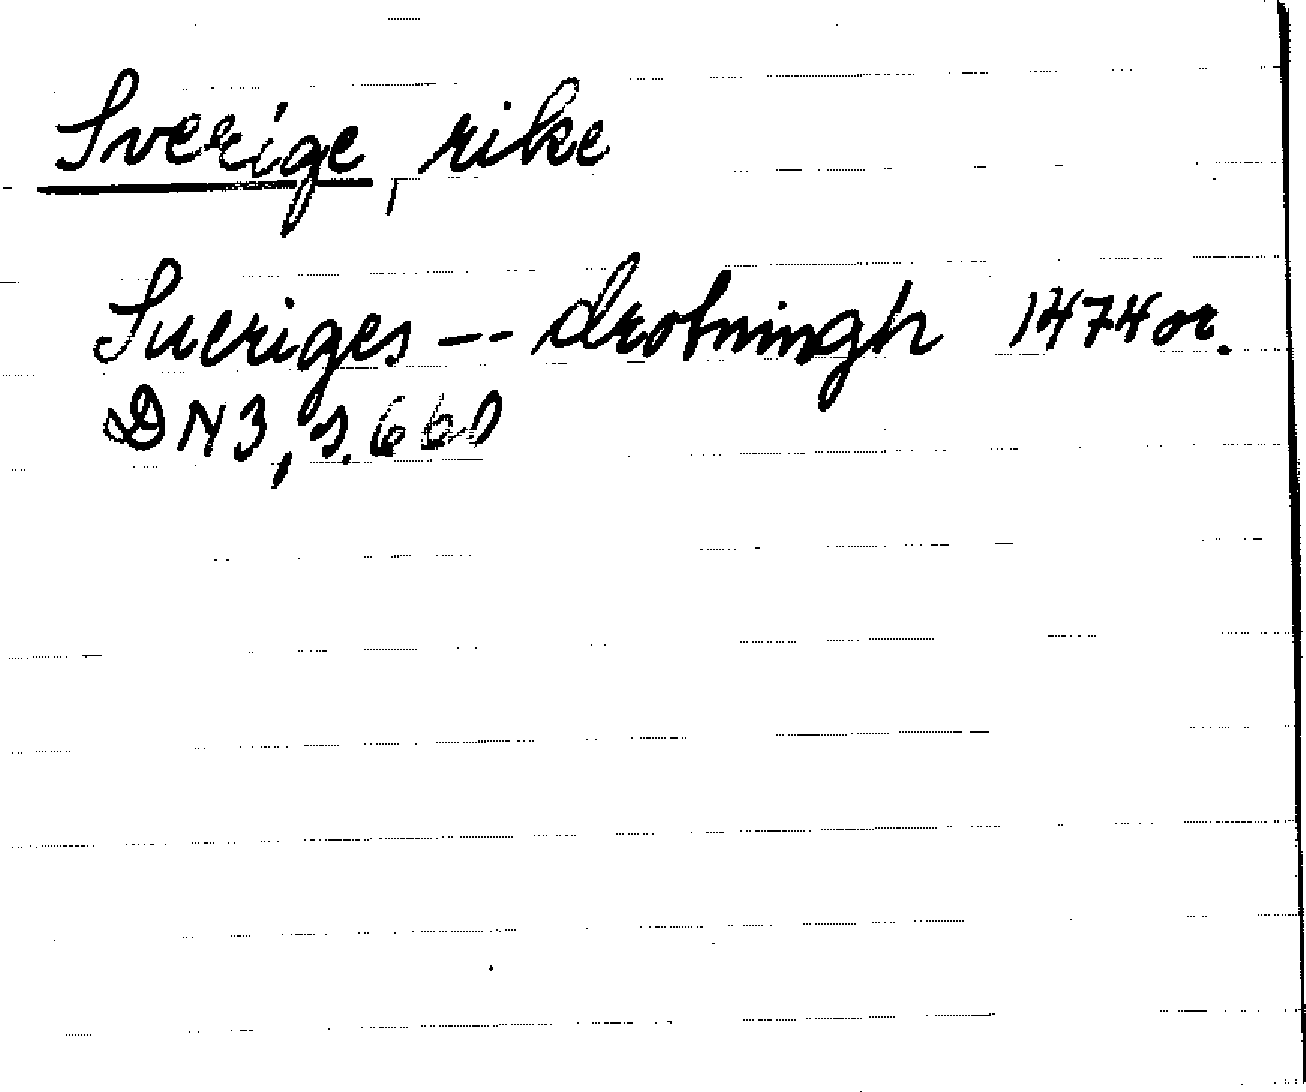 Sverige, rike
Sueriges -- drotningh 1474 or.
DN3, s. 660